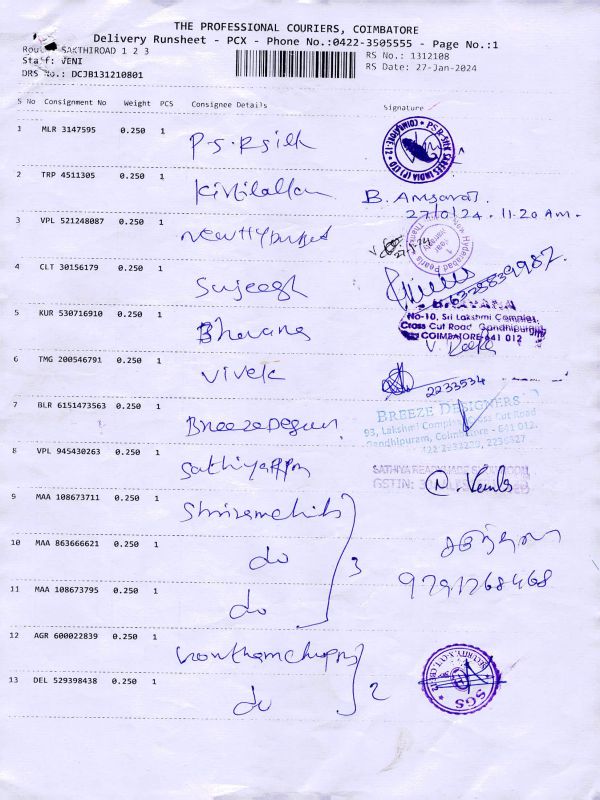 THE PROFESSIONAL COURIERS, COIMBATORE
Delivery Runsheet - PCX - Phone No.:0422-3505555 - Page No.:1
Route: SAKTHIROAD 1 2 3
RS No.: 1312108
Staff: VENI
RS Date: 27-Jan-2024
DRS No.: DCJB131210801
S No Consignment No Weight PCS Consignee Details Signature
1 MLR 3147595 0.250 1 P.S.R silk
2 TRP 4511305 0.250 1
B.
27/0/24. 11.20 Am.
3 VPL 521248087 0.250 1
Hyderabad Pearls
4 CLT 30156179 0.250 1 Sujeegh
6325839987.
5 KUR 530716910 0.250 1 Bhavana
No-10, Sri Lakshmi Complex,
Cross Cut Road, Gandhipuram,
COIMBATORE-641 012
6 TMG 200546791 0.250 1 Vivek
2233534
7 BLR 6151473563 0.250 1
BREEZE DESIGNERS
93, Lakshmi Complex, Cross Cut Road
Gandhipuram, Coimbatore - 641 012.
8 VPL 945430263 0.250 1
SATHIYA READYMADE SHOWROOM
GSTIN:
N. Vemla
9 MAA 108673711 0.250 1
10 MAA 863666621 0.250 1 do 3
9791268468
11 MAA 108673795 0.250 1 do
12 AGR 600022839 0.250 1
SGS
13 DEL 529398438 0.250 1 do 2